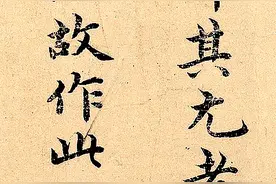 其尤者
故作此